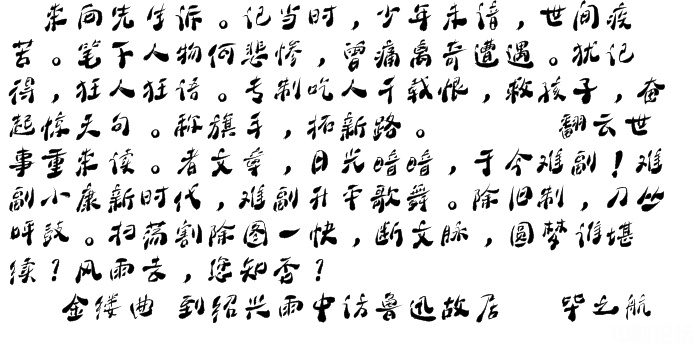 来向先生诉。记当时，少年未谙，世间疾
苦。笔下人物何悲惨，曾痛离奇遭遇。犹记
得，狂人狂语。专制吃人千载恨，救孩子，奋
起惊天句。称旗手，拓新路。 翻云世
事重来读。者文章，日光暗暗，于今难副！难
副小康新时代，难副升平歌舞。除旧制，刀丛
呼鼓。扫荡割除图一快，断文脉，圆梦谁堪
续？风雨去，您知否？
金缕曲 到绍兴雨中访鲁迅故居 毕之航